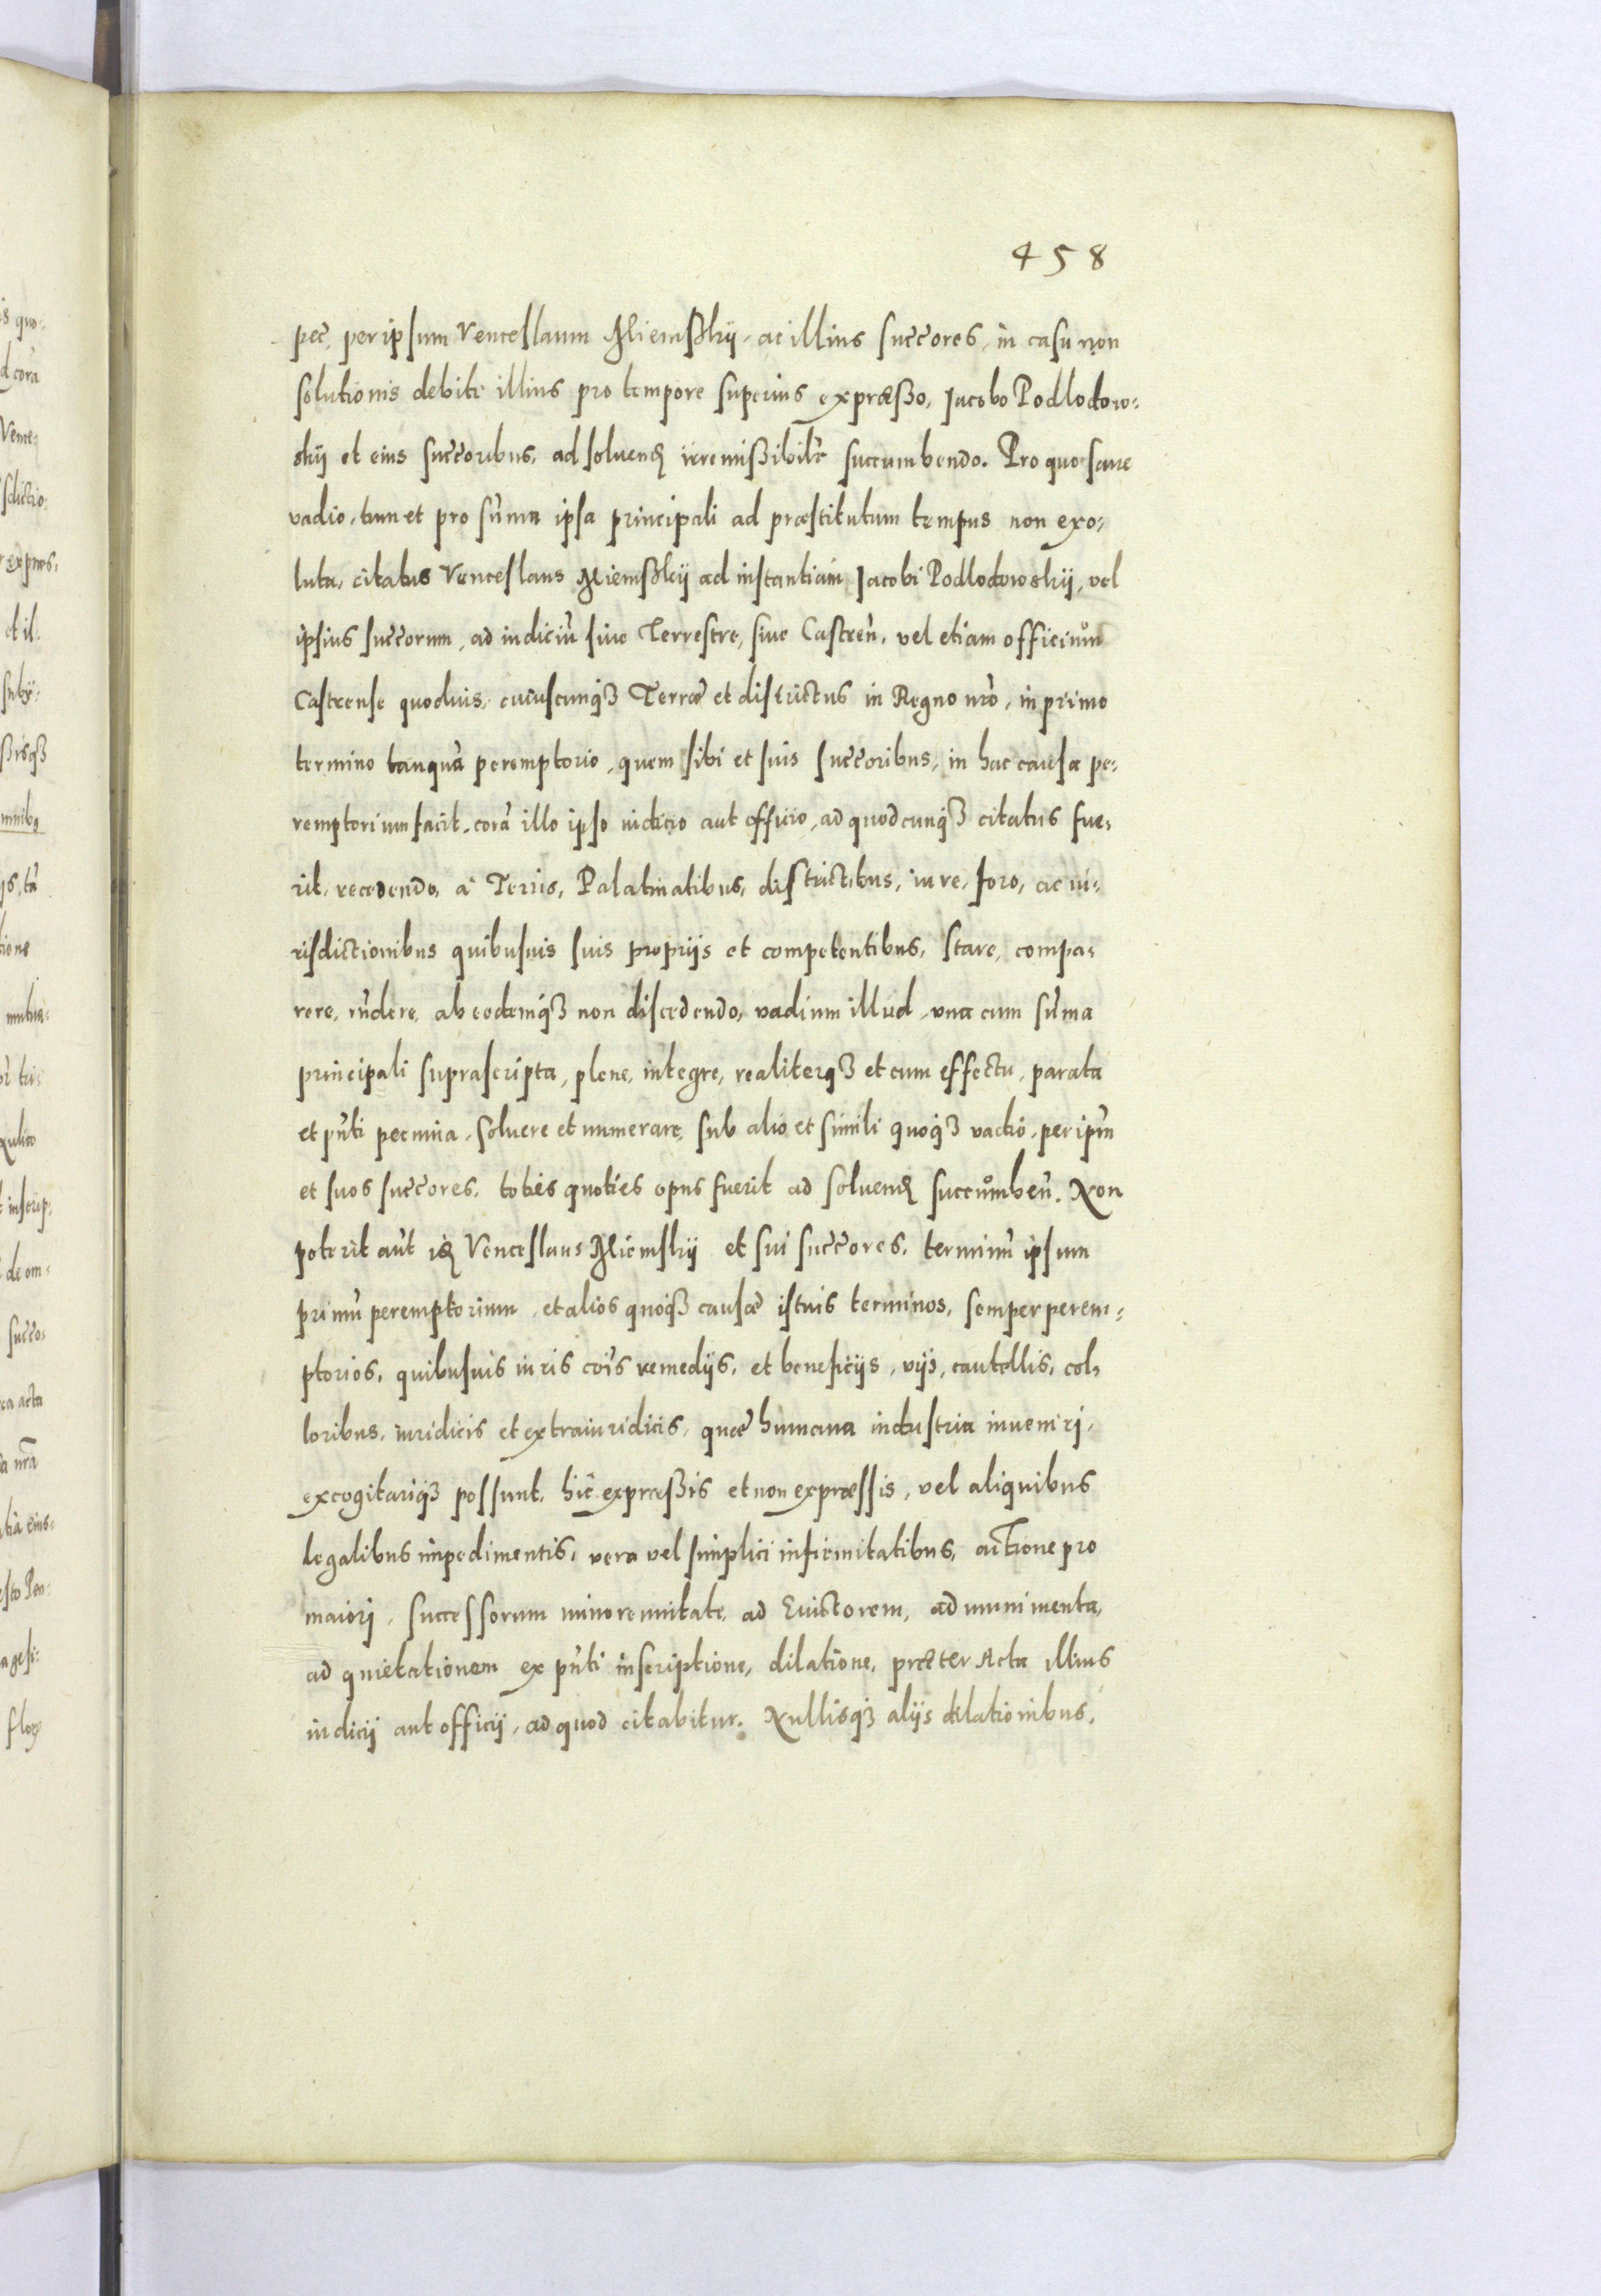 458
pec̃, per ipsum Venceslaum Niemsky, ac illius succ̃ores, in casu non
solutionis debite illius pro tempore superius expræsso, Jacobo Podlodow:
sky et eius succ̃oribus, ad soluend irremissibilr̃ succumbendo. Pro quo sane
vadio, tum et pro sum̃a ipsa principali ad præstitutum tempus non exo:
luta, citatus Venceslaus Niemsky ad instantiam Jacobi Podlodowsky, vel
ipsius succ̃orum, ad iudiciũ siue Terrestre, siue Castreñ. vel etiam officium
Castrense quoduis, cuiuscunq3 Terræ et districtus in Regno nr̃o, in primo
termino tanquã peremptorio, quem sibi et suis succ̃oribus, in hac causa pe:
remptorium facit, corã illo ipso iudicio aut officio, ad quodcunq3 citatus fue:
rit, recedendo, à Terris, Palatinatibus, districtibus, iure, foro, ac iu:
risdictionibus quibusuis suis proprijs et competentibus, stare, compa:
rere, rñdere, ab eodemq3 non discedendo, vadium illud, una cum sum̃a
principali suprascripta, plene, integre, realiterq3 et cum effectu, parata
et pñti pecunia, soluere et numerare, sub alio et simili quoq3 vadio, per ipm̃
et suos succ̃ores, toties quoties opus fuerit ad soluend succumbeñ. Non
poterit aũt id Venceslaus Niemsky et sui succ̃ores, terminũ ipsum
primũ peremptorium, et alios quoq3 causæ istius terminos, semper perem:
ptorios, quibusuis iuris cõis remedijs, et beneficijs, vijs, cautellis, col:
loribus, iuridicis et extraiuridicis, quæ humana industria inueniri,
excogitariq3 possunt, hic expræssis et non expræssis, vel aliquibus
legalibus impedimentis, vera vel simplici infirmitatibus, actione pro
maiori, successorum minorennitate, ad Euictorem, ad munimenta,
ad quietationem ex pñti inscriptione, dilatione, præter Acta illius
iudicij aut officij, ad quod citabitur. Nullisq3 alijs dilationibus,